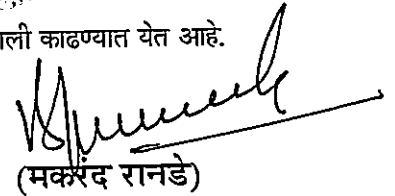 ली काढण्यात येत आहे.
(मकरंद रानडे)